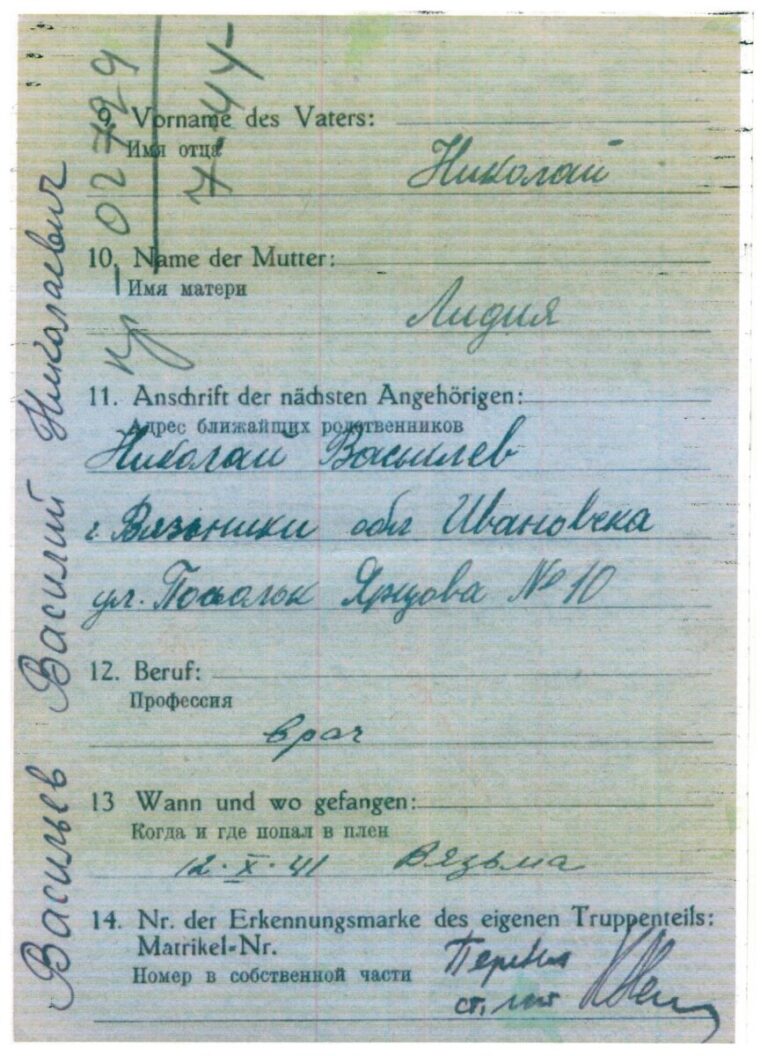 02729
7-44
9. Vorname des Vaters:
Имя отца
Николай
10. Name der Mutter:
Имя матери
Лидия
11. Anschrift der nächsten Angehörigen:
Адрес ближайших родственников
Николай Васильев
г. Вязники обл Ивановска
ул. Ярцова № 10
12. Beruf:
Профессия
врач
13 Wann und wo gefangen:
Когда и где попал в плен
12·X·41 Вязьма
14. Nr. der Erkennungsmarke des eigenen Truppenteils:
Matrikel-Nr.
Номер в собственной части
ст.
Васильев Василий Николаевич